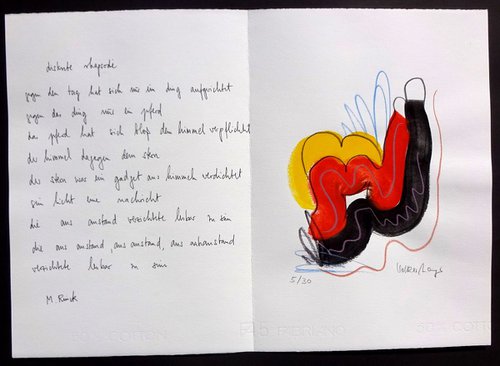 diskrete rhapsodie
gegen den tag hat sich mir ein ding aufgerichtet
gegen das ding mir ein pferd
das pferd hat sich bloß dem himmel verpflichtet
der himmel dagegen dem stern
der stern war ein gadget aus himmel verdichtet
sein licht eine nachricht
die aus anstand verzichtete lesbar zu sein
die aus anstand, aus anstand, aus
verzichtete lesbar zu sein
M
5/30
50% COTTON
FABRIANO
50% COTTON